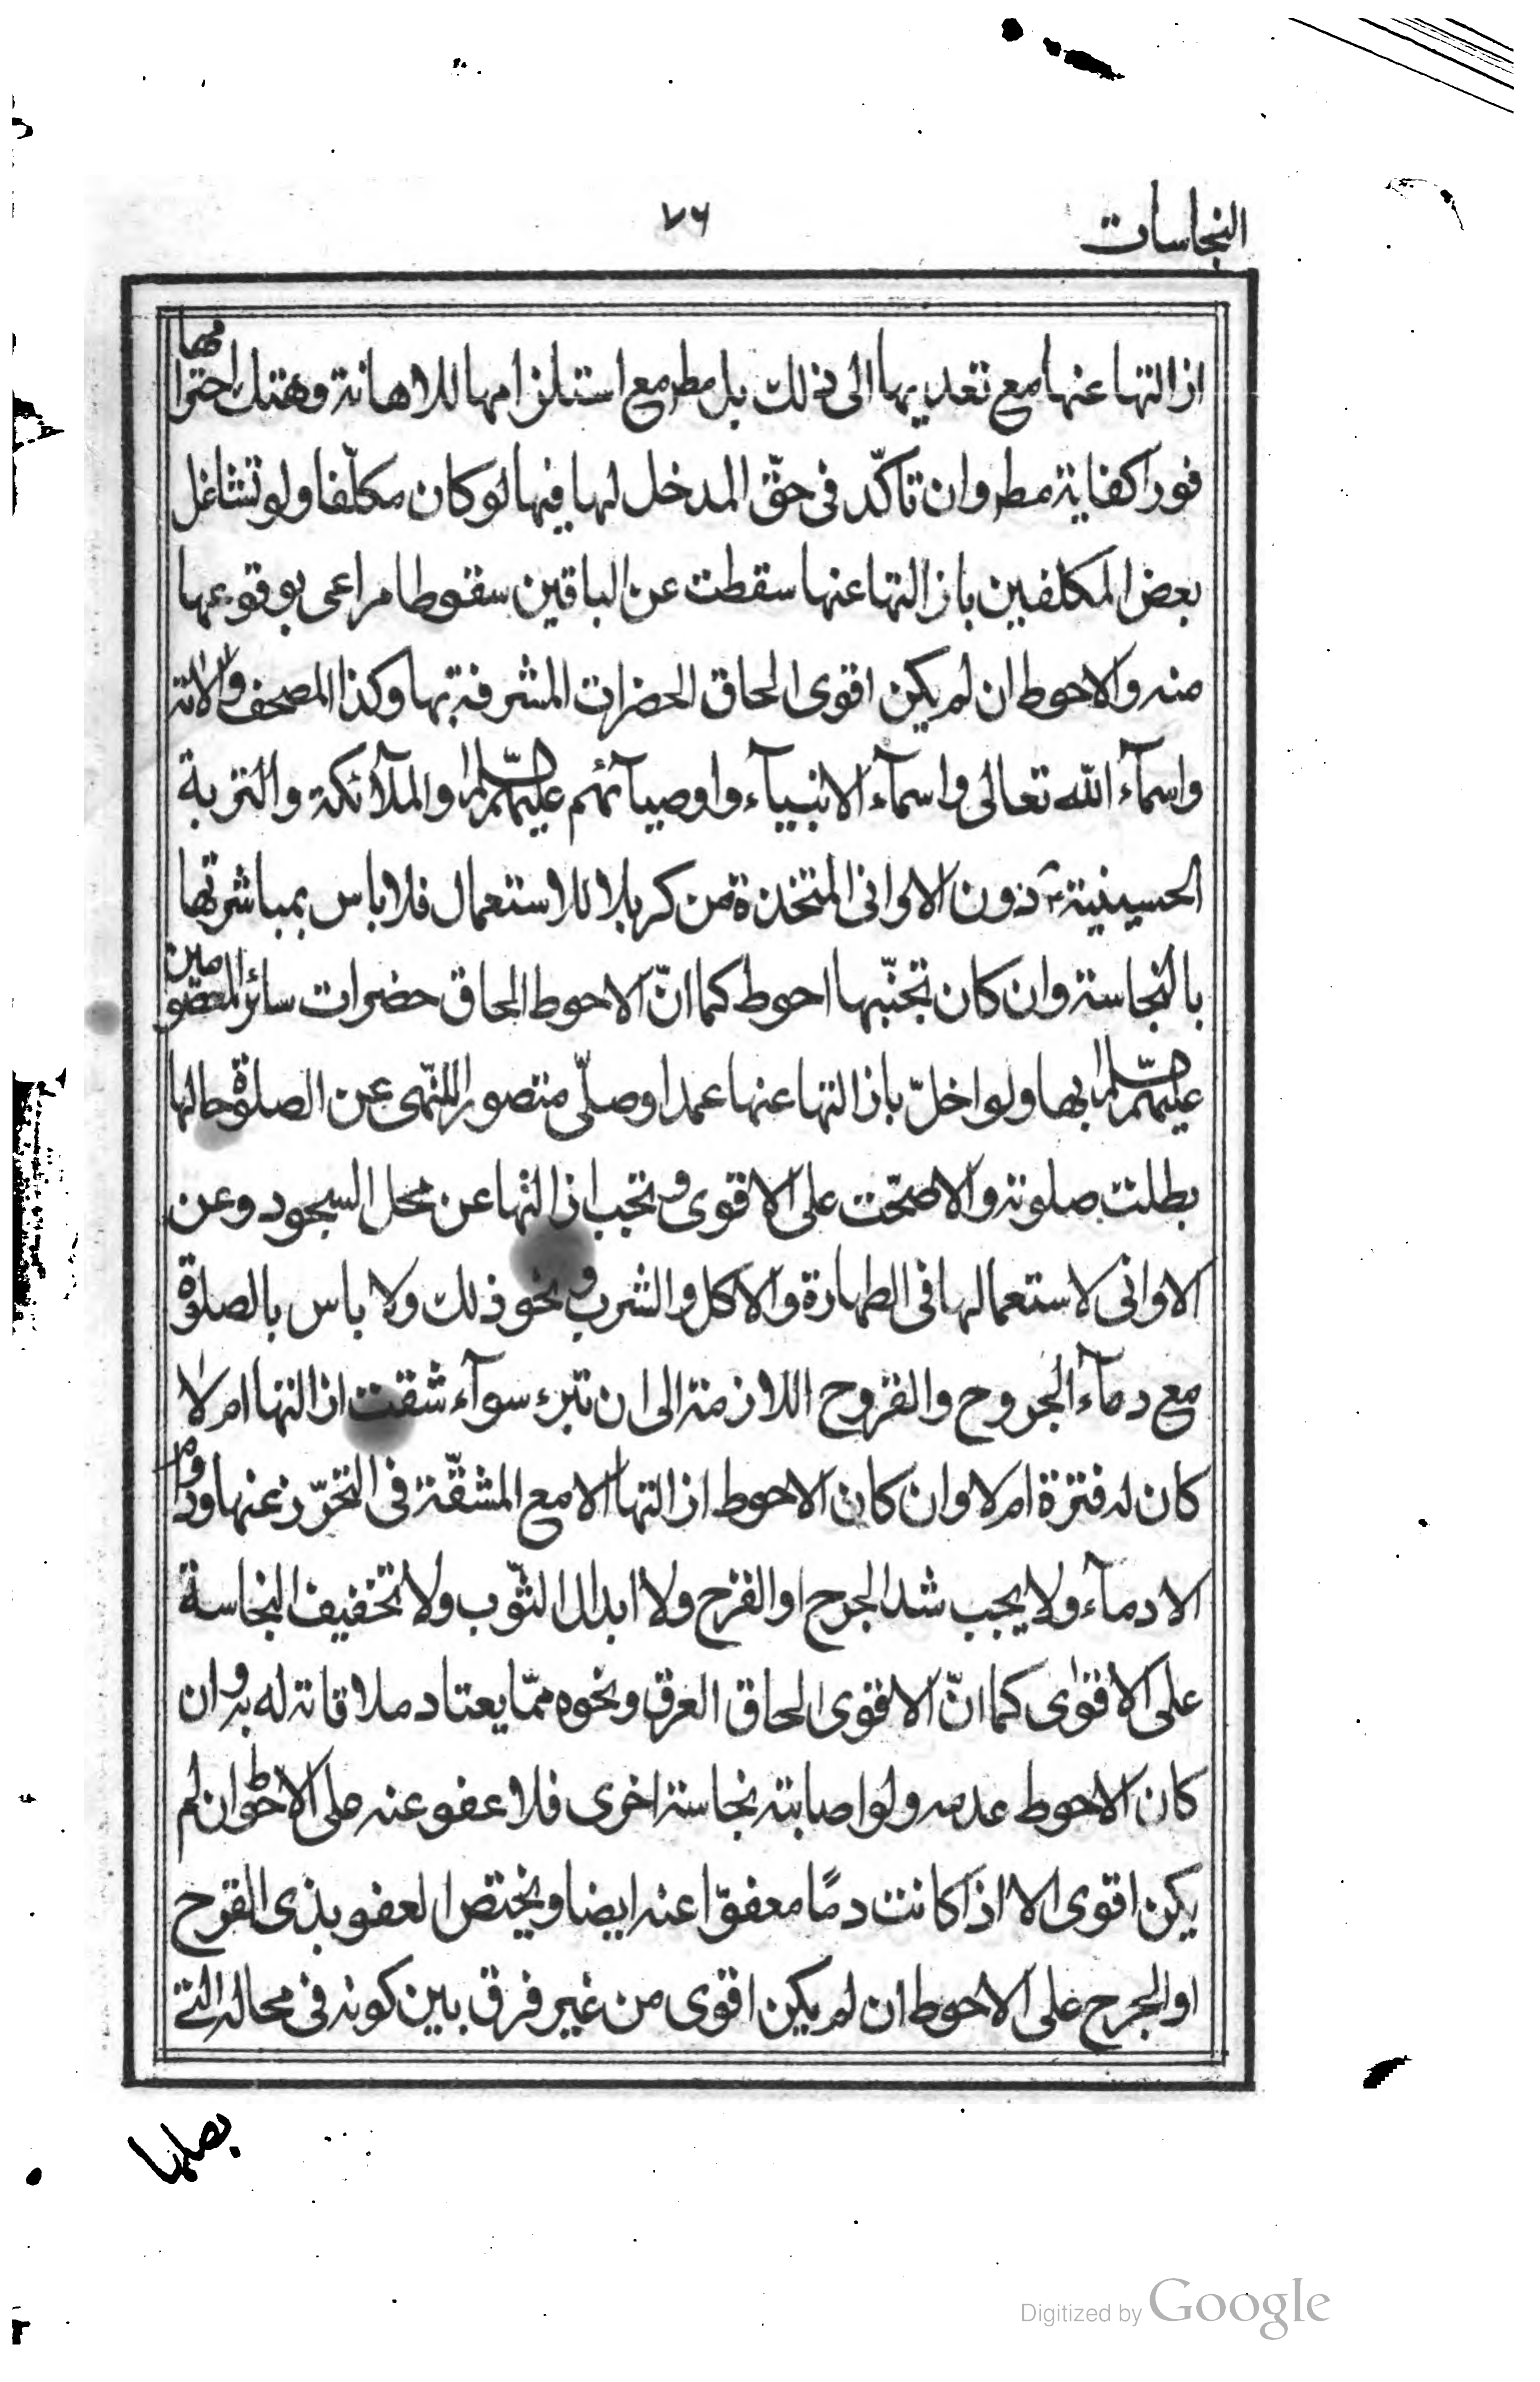 النجاسات
٧٦
ازالتها عنها مع تعديها الى ذلك بل مطر مع استلزامها للاهانة وهتك احترامها
فورا كفاية مطر وان تاكّد فى حقّ المدخل لها فيها لو كان مكلّفا ولو تشاغل
بعض المكلفين بازالتها عنها سقطت عن الباقين سقوطا مراعى بوقوعها
منه والاحوط ان لم يكن اقوى الحاق الحضرات المشرفة بها وكذا المصحف والاته
واسمآء الله تعالى واسمآء الانبيآء واوصيآئهم عليهم السلام والملآئكة والتربة
الحسينية دون الاوانى المتخذة من كربلا للاستعمال فلا باس بمباشرتها
بالنجاسة وان كان تجنّبها احوط كما انّ الاحوط الحاق حضرات سائر المعصومين
عليهم السلام بها ولو اخلّ بازالتها عنها عمدا وصلّى متصورا للنهى عن الصلوة حالها
بطلت صلوته والا صحّت على الاقوى وتجب ازالتها عن محل السجود وعن
الاوانى لاستعمالها فى الطهارة والاكل والشرب ونحو ذلك ولا باس بالصلوة
مع دمآء الجروح والقروح اللازمة الى ان تبرء سوآء شقت ازالتها ام لا
كان له فترة ام لا وان كان الاحوط ازالتها الا مع المشقّة فى التحرّز عنها ودوام
الادمآء ولا يجب شد الجرح او القرح ولا ابدال الثّوب ولا تخفيف النجاسة
على الاقوى كما انّ الاقوى الحاق العرق ونحوه ممّا يعتاد ملاقاته له به وان
كان الاحوط عدمه ولو اصابته نجاسة اخرى فلا عفو عنه على الاحوط ان لم
يكن اقوى الا اذا كانت دمًا معفوّا عنه ايضا ويختص العفو بذى القرح
او الجرح على الاحوط ان لم يكن اقوى من غير فرق بين كونه فى محاله التى
يصلها
Digitized by Google